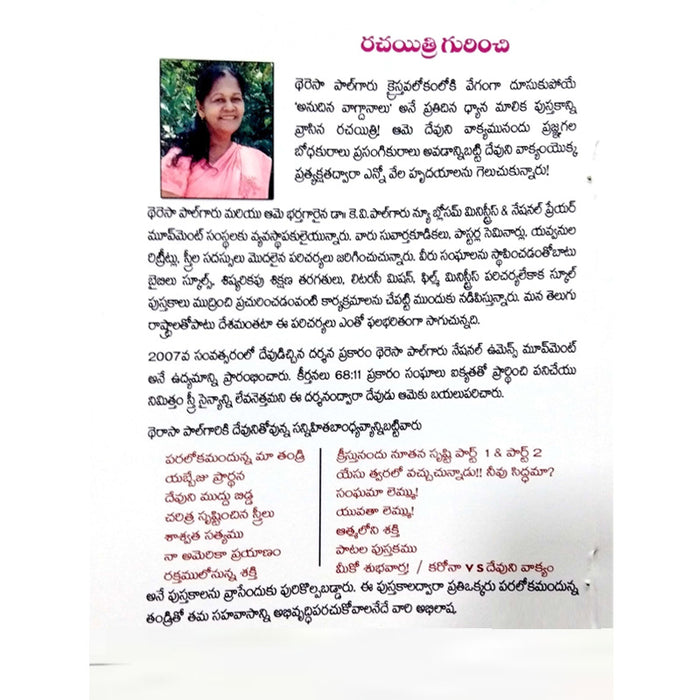 రచయిత్రి గురించి
థెరెసా పాల్‌గారు క్రైస్తవలోకంలోకి వేగంగా దూసుకుపోయే
'అనుదిన వాగ్దానాలు' అనే ప్రతిదిన ధ్యాన మాలిక పుస్తకాన్ని
వ్రాసిన రచయిత్రి! ఆమె దేవుని వాక్యమునందు ప్రజ్ఞగల
బోధకురాలు ప్రసంగికురాలు అవడాన్నిబట్టి దేవుని వాక్యంయొక్క
ప్రత్యక్షతద్వారా ఎన్నో వేల హృదయాలను గెలుచుకున్నారు!
థెరెసా పాల్‌గారు మరియు ఆమె భర్తగారైన డా॥ కె.వి.పాల్‌గారు న్యూ బ్లోసమ్ మినిస్ట్రీస్ & నేషనల్ ప్రేయర్
మూవ్‌మెంట్ సంస్థలకు వ్యవస్థాపకులైయున్నారు. వారు సువార్తకూడికలు, పాస్టర్ల సెమినార్లు, యవ్వనుల
రిట్రీట్లు, స్త్రీల సదస్సులు మొదలైన పరిచర్యలు జరిగించుచున్నారు. వీరు సంఘాలను స్థాపించడంతోబాటు
బైబిలు స్కూల్స్, శిష్యరికపు శిక్షణ తరగతులు, లిటరసీ మిషన్, ఫిల్మ్ మినిస్ట్రీస్ పరిచర్యలేకాక స్కూల్
పుస్తకాలు ముద్రించి ప్రచురించడంవంటి కార్యక్రమాలను చేపట్టి ముందుకు నడిపిస్తున్నారు. మన తెలుగు
రాష్ట్రాలతోపాటు దేశమంతటా ఈ పరిచర్యలు ఎంతో ఫలభరితంగా సాగుచున్నది.
2007వ సంవత్సరంలో దేవుడిచ్చిన దర్శన ప్రకారం థెరెసా పాల్‌గారు నేషనల్ ఉమెన్స్ మూవ్‌మెంట్
అనే ఉద్యమాన్ని ప్రారంభించారు. కీర్తనలు 68:11 ప్రకారం సంఘాలు ఐక్యతతో ప్రార్థించి పనిచేయు
నిమిత్తం స్త్రీ సైన్యాన్ని లేవనెత్తమని ఈ దర్శనంద్వారా దేవుడు ఆమెకు బయలుపరిచారు.
థెరాసా పాల్‌గారికి దేవునితోవున్న సన్నిహితబాంధ్యవ్యాన్నిబట్టివారు
పరలోకమందున్న మా తండ్రి
యబ్బేజు ప్రార్థన
దేవుని ముద్దు బిడ్డ
చరిత్ర సృష్టించిన స్త్రీలు
శాశ్వత సత్యము
నా అమెరికా ప్రయాణం
రక్తములోనున్న శక్తి
క్రీస్తునందు నూతన సృష్టి పార్ట్ 1 & పార్ట్ 2
యేసు త్వరలో వచ్చుచున్నాడు!! నీవు సిద్ధమా?
సంఘమా లెమ్ము!
యువతా లెమ్ము!
ఆత్మలోని శక్తి
పాటల పుస్తకము
మీకో శుభవార్త! / కరోనా VS దేవుని వాక్యం
అనే పుస్తకాలను వ్రాసేందుకు పురికొల్పబడ్డారు. ఈ పుస్తకాలద్వారా ప్రతిఒక్కరు పరలోకమందున్న
తండ్రితో తమ సహవాసాన్ని అభివృద్ధిపరచుకోవాలనేదే వారి అభిలాష.